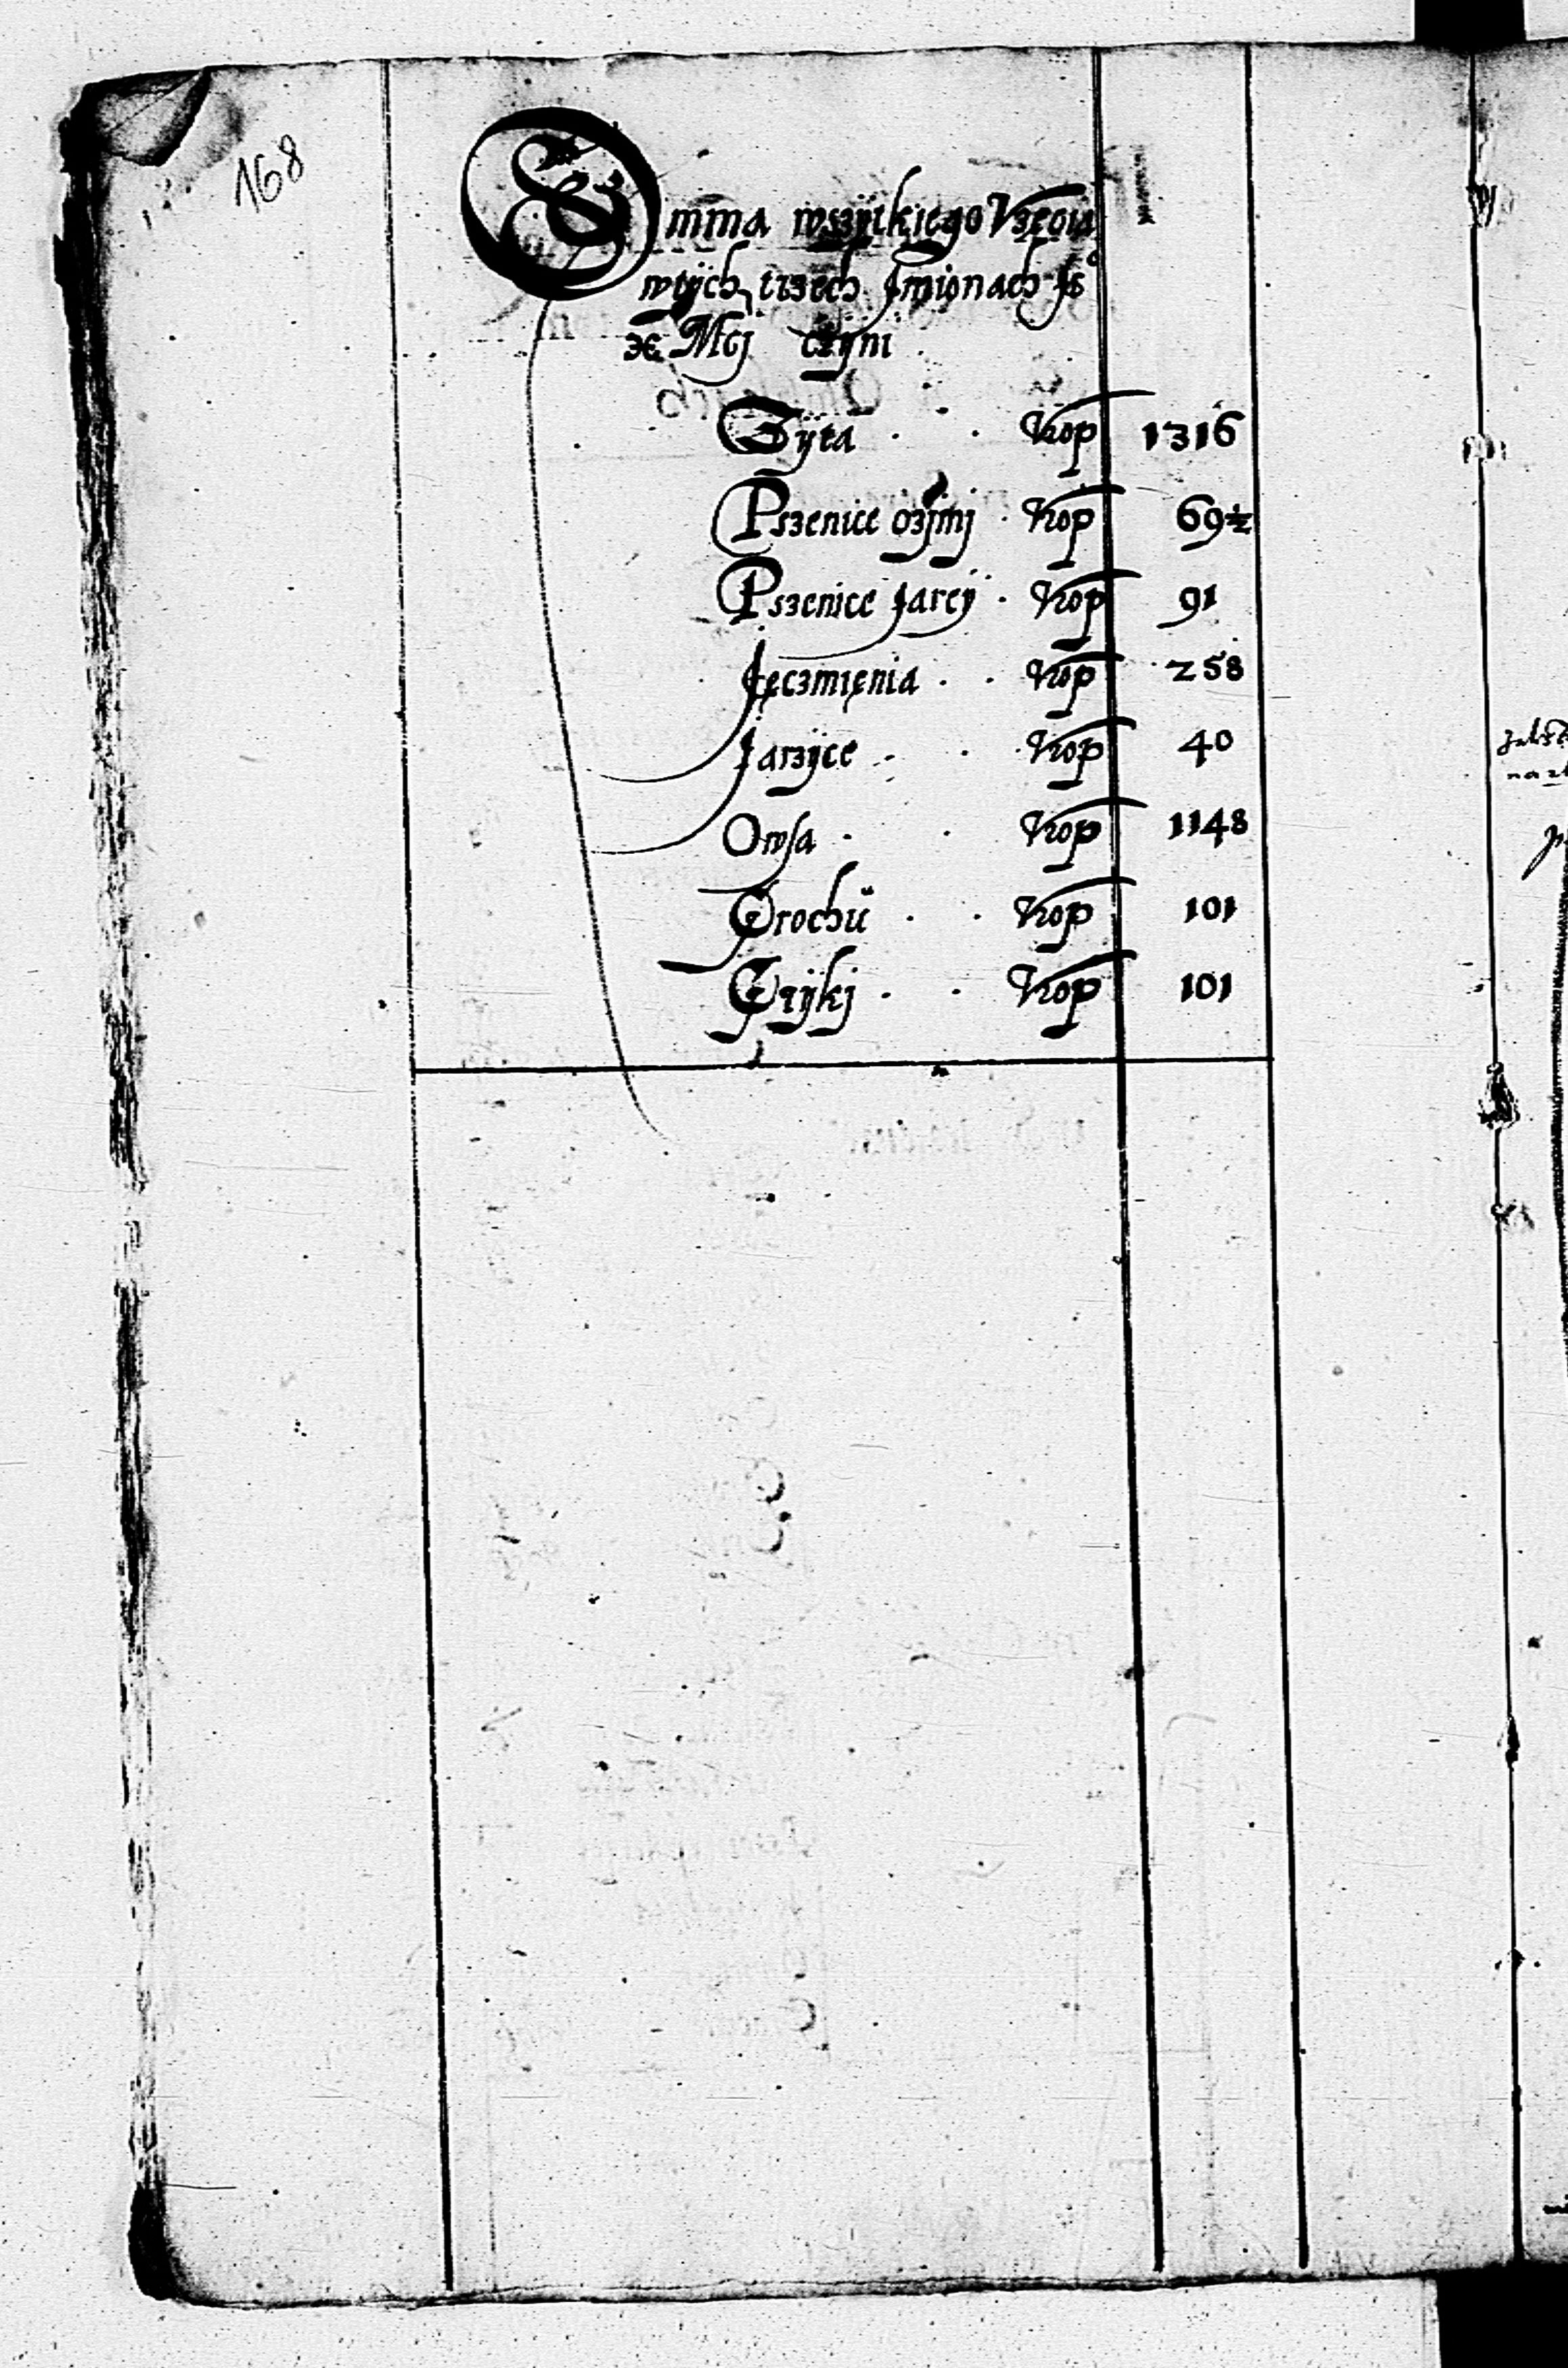 168
Summa wszytkiego Vrzoia
wtych trzech Jmionach Js°
X Mcj czyni
Zyta · · Kop 1316
Pszenice ozimj · Kop 69½
Pszenice Jarey · Kop 91
Jęczmięnia · · Kop 258
Jarzyce · · Kop 40
Owsa · · Kop 1148
Grochu · · Kop 101
Gryki · · Kop 101